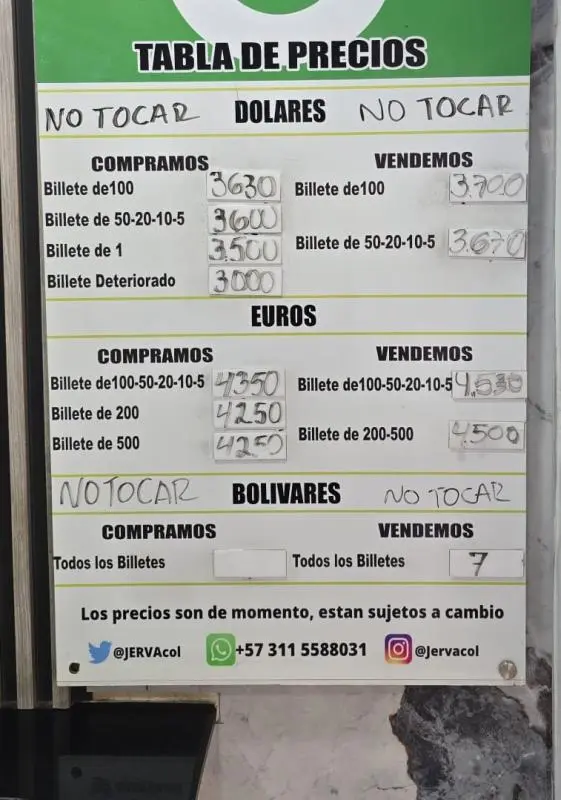 TABLA DE PRECIOS
NO TOCAR DOLARES NO TOCAR
COMPRAMOS VENDEMOS
Billete de100 3630 Billete de100 3.700
Billete de 50-20-10-5 3600 Billete de 50-20-10-5 3.670
Billete de 1 3.500
Billete Deteriorado 3000
EUROS
COMPRAMOS VENDEMOS
Billete de100-50-20-10-5 4350 Billete de100-50-20-10-5 4.530
Billete de 200 4250
Billete de 500 4250 Billete de 200-500 4.500
NO TOCAR BOLIVARES NO TOCAR
COMPRAMOS VENDEMOS
Todos los Billetes Todos los Billetes 7
Los precios son de momento, estan sujetos a cambio
@JERVAcol +57 311 5588031 @Jervacol